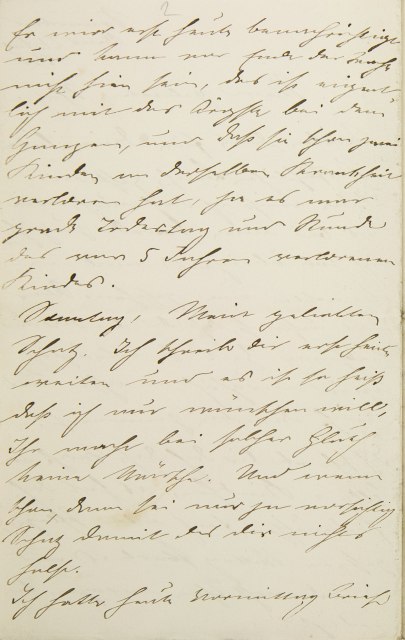 Er wird erst heute benachrichtigt
und kann vor Ende der Woche
nicht hier sein, das ist eigent-
lich mit das Ärgste bei dem
Ganzen, und daß sie schon zwei
Kinder an derselben Krankheit
verloren hat, ja es war
grade Todestag und Stunde
des vor 5 Jahren verlorenen
Kindes.
Sonntag, Mein geliebter
Schatz. Ich schreib dir erst heute
weiter und es ist so heiß
daß ich nur wünschen will,
Ihr macht bei solcher Gluth
keine Märsche. Und wenn
schon, dann sei nur ja vorsichtig
Schatz damit das dir nichts
Ich hatte heute Vormittag Brief